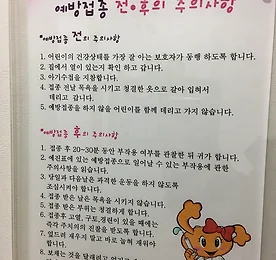 예방접종 전·후의 주의사항
*예방접종 전의 주의사항
1. 어린이의 건강상태를 가장 잘 아는 보호자가 동행 하도록 합니다.
2. 집에서 열이 있는지 확인 하고 갑니다.
3. 아기수첩을 지참합니다.
4. 접종 전날 목욕을 시키고 청결한 옷으로 갈아 입혀서
데리고 갑니다.
5. 예방접종을 하지 않을 어린이를 함께 데리고 가지 않습니다.
*예방접종 후의 주의사항
1. 접종 후 20~30분 동안 부작용 여부를 관찰한 뒤 귀가 합니다.
2. 예진표에 있는 예방접종으로 일어날 수 있는 부작용에 관한
주의사항을 읽습니다.
3. 당일과 다음날은 과격한 운동을 하지 않도록
조심시켜야 합니다.
4. 접종 받은 날은 목욕을 시키지 않습니다.
5. 접종 받은 부위는 청결하게 합니다.
6. 접종후 고열, 구토,경련이 있을 때에는
즉각 주치의의 진찰을 받도록 합니다.
7. 엎드려 재우지 말고 바로 눕혀 재워야
합니다.
8. 보채는 것을 달래려고